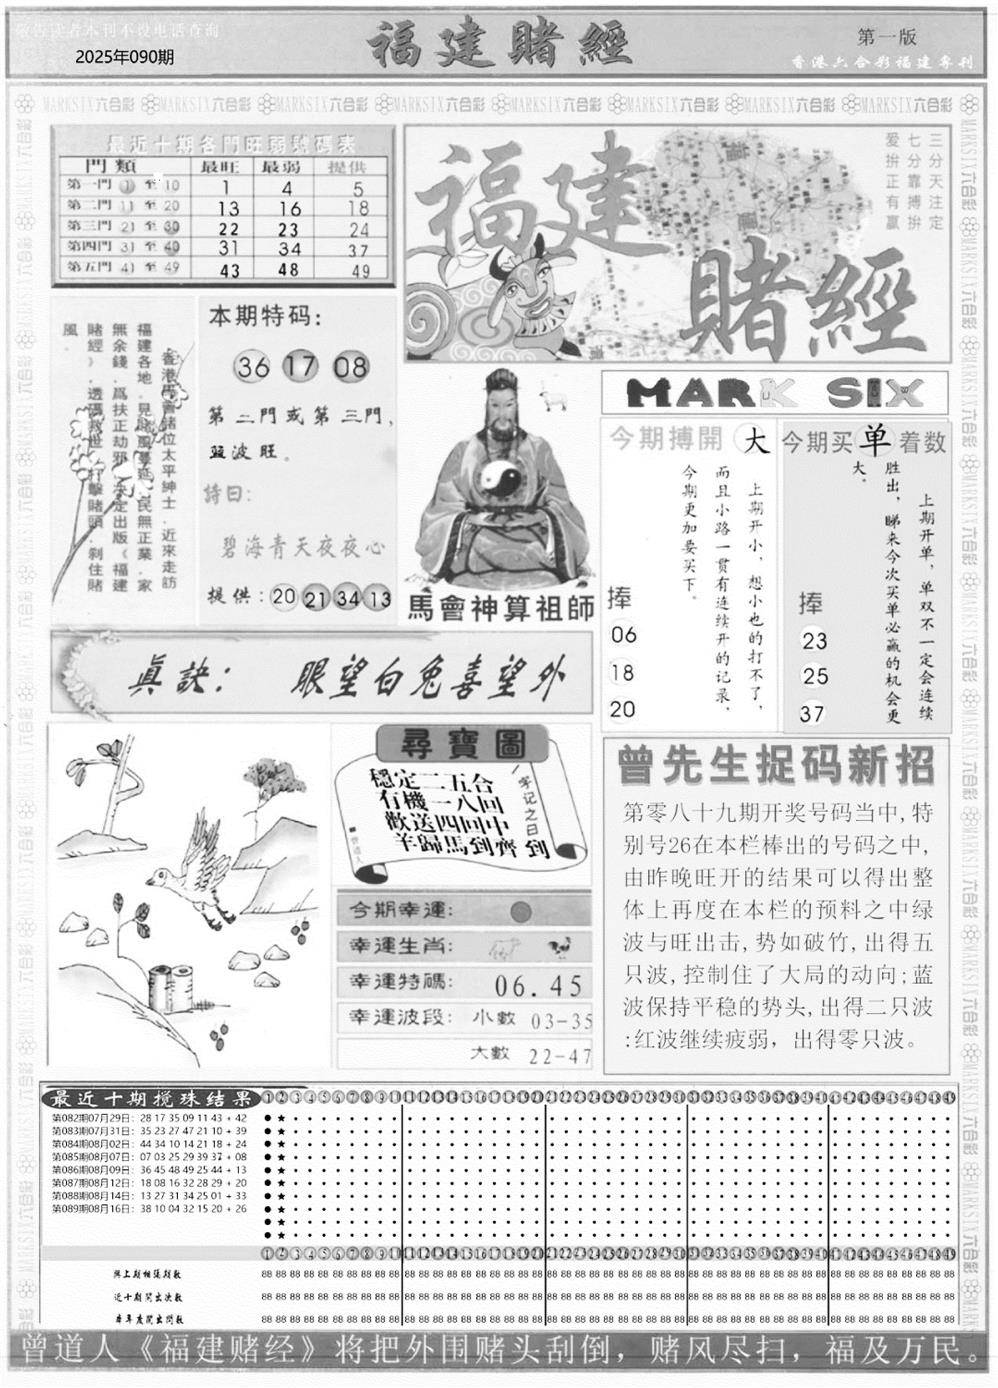 敬告读者本刊不设电话查询
2025年090期
福建賭經
第一版
香港六合彩福建專刊
MARKSIX六合彩 MARKSIX六合彩 MARKSIX六合彩 MARKSIX六合彩 MARKSIX六合彩 MARKSIX六合彩 MARKSIX六合彩 MARKSIX六合彩
最近十期各門旺弱號碼表
門類 最旺 最弱 提供
第一門 1 至 10 1 4 5
第二門 11 至 20 13 16 18
第三門 21 至 30 22 23 24
第四門 31 至 40 31 34 37
第五門 41 至 49 43 48 49
福建
賭經
三分天注定
七分靠搏拚
爱拚正有赢
香港馬會諸位太平紳士.近來走訪
福建各地.見賭風蔓延.民無正業.家
無余錢.爲扶正劫邪.决定出版《福建
賭經》.透碼救世.打擊賭頭.刹住賭
風.
本期特码:
36 17 08
第二門或第三門,
蓝波旺。
詩曰:
碧海青天夜夜心
提供: 20 21 34 13
馬會神算祖師
MARK SIX
今期搏開 大
上期开小，想小也的打不了，
而且小路一贯有连续开的记录，
今期更加要买下。
捧
06
18
20
今期买单着数
上期开单，单双不一定会连续
胜出，睇来今次买单必赢的机会更
大。
捧
23
25
37
眞訣: 眼望白兔喜望外
尋寶圖
穩定二五合
有機一八回
歡送四回中
羊歸馬到齊
一字记之曰
到
曾道人
今期幸運:
幸運生肖:
幸運特碼: 06.45
幸運波段: 小數 03-35
大數 22-47
曾先生捉码新招
第零八十九期开奖号码当中,特
别号26在本栏棒出的号码之中,
由昨晚旺开的结果可以得出整
体上再度在本栏的预料之中绿
波与旺出击,势如破竹,出得五
只波,控制住了大局的动向;蓝
波保持平稳的势头,出得二只波
:红波继续疲弱，出得零只波。
最近十期搅珠结果
第082期07月29日: 28 17 35 09 11 43 + 42
第083期07月31日: 35 23 27 47 21 10 + 39
第084期08月02日: 44 34 10 14 21 18 + 24
第085期08月07日: 07 03 25 29 39 37 + 08
第086期08月09日: 36 45 48 49 25 44 + 13
第087期08月12日: 18 08 16 32 28 29 + 20
第088期08月14日: 13 27 31 34 25 01 + 33
第089期08月16日: 38 10 04 32 15 20 + 26
與上期相隔期数
近十期開出次数
本年度開出期数
曾道人《福建赌经》将把外围赌头刮倒，赌风尽扫，福及万民。